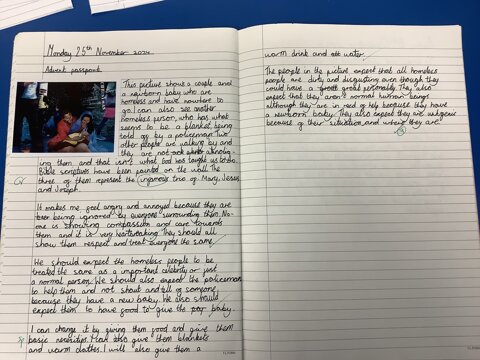 Monday 25th November 2024
Advent passport
This picture shows a couple and
a newborn baby who are
homeless and have nowhere to
go. I can also see another
homeless person, who has what
seems to be a blanket, being
told off by a policeman. The
other people are walking by and
they are not acknowledg-
ing them and that isn't what God has taught us to do.
Bible scriptures have been painted on the wall. The
three of them represent the infamous trio of Mary, Jesus
and Joseph.
It makes me feel angry and annoyed because they are
being ignored by everyone surrounding them. No-
one is showing compassion and care towards
them and it is very heartbreaking. They should all
show them respect and treat everyone the same.
We should expect the homeless people to be
treated the same as a important celebrity or just
a normal person. We should also expect the policeman
to help them and not shout and tell of someone
because they have a new baby. We also should
expect them to have good to give the poor baby.
I can change it by giving them good and give them
basic necessities. I can also give them blankets
and warm clothes. I will also give them a
warm drink and hot water.
The people in the picture expect that all homeless
people are dirty and disgusting even though they
could have a great personality. They also
expect that they aren't normal human beings
although they are in need of help because they have
a newborn baby. They also expect they are
because of their situation and where they are.